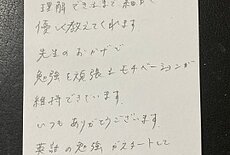 理解できるまで細かく
優しく教えてくれます
先生のおかげで
勉強を頑張るモチベーションが
維持できています
いつもありがとうございます
英語の勉強がスタートして